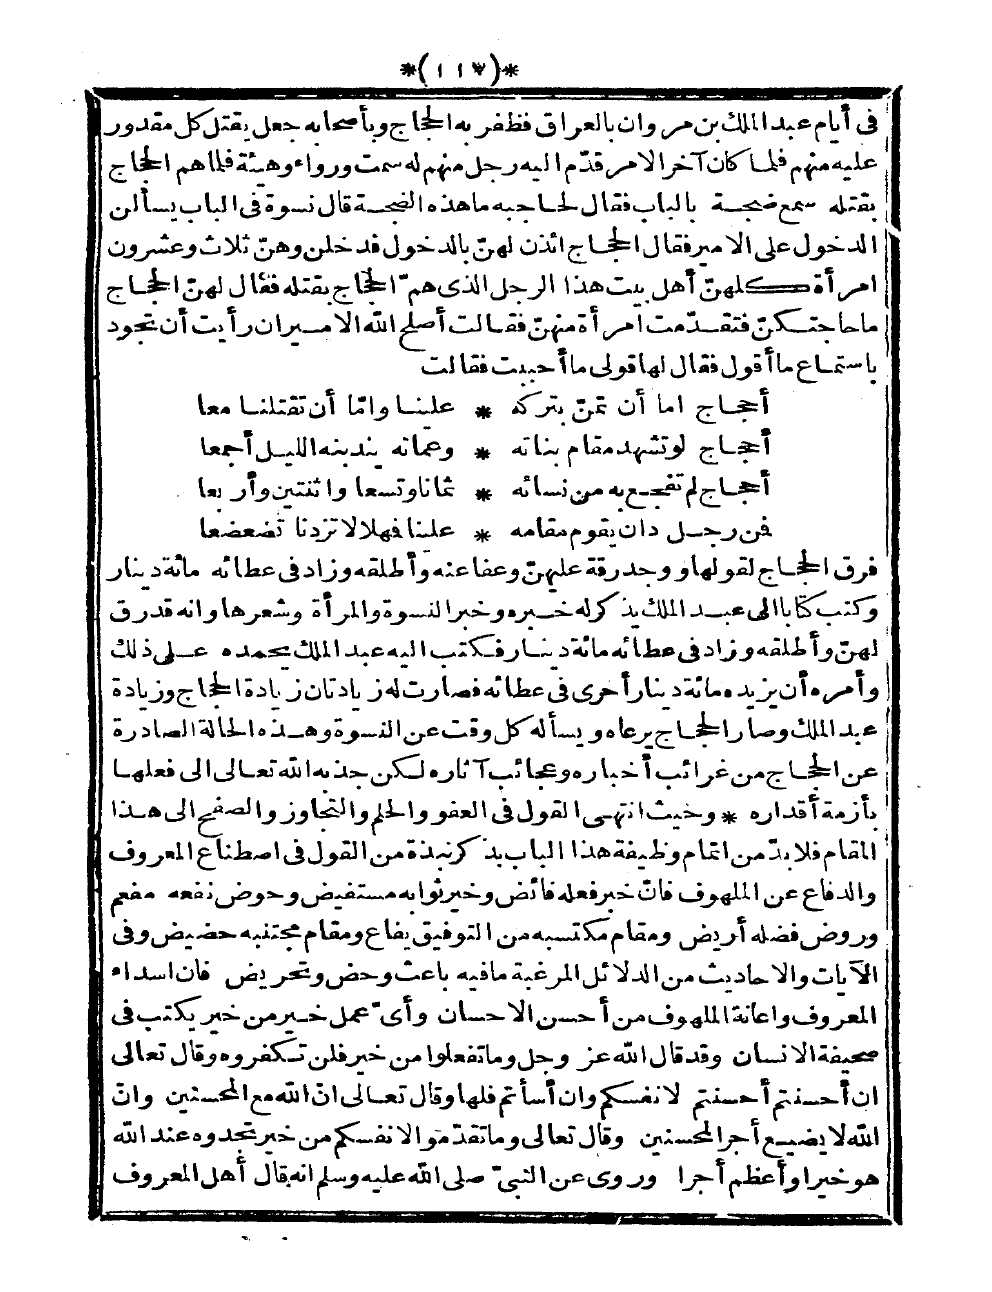 *(١١٧)*
فى أيام عبد الملك بن مروان بالعراق فظفر به الحجاج وبأصحابه جعل يقتل كل مقدور
عليه منهم فلما كان آخر الامر قدّم اليه رجل منهم له سمت ورواء وهيئة فلما هم الحجاج
بقتله سمع ضجة بالباب فقال لحاجبه ما هذه الضجة قال نسوة فى الباب يسألن
الدخول على الامير فقال الحجاج ائذن لهنّ بالدخول فدخلن وهنّ ثلاث وعشرون
امرأة كلهنّ أهل بيت هذا الرجل الذى همّ الحجاج بقتله فقال لهنّ الحجاج
ما حاجتكنّ فتقدّمت امرأة منهنّ فقالت أصلح الله الامير ان رأيت أن تجود
باستماع ما أقول فقال لها قولى ما أحببت فقالت
أحجاج اما أن تمنّ بتركه * علينا وامّا أن تقتلنا معا
أحجاج لو تشهد مقام بناته * وعماته يندبنه الليل أجمعا
أحجاج لم تفجع به من نسائه * ثمانا وتسعا واثنتين وأربعا
فمن رجل دان يقوم مقامه * علينا فهلا لا تزدنا تضعضعا
فرق الحجاج لقولها ووجد رقة عليهنّ وعفا عنه وأطلقه وزاد فى عطائه مائة دينار
وكتب كتابا الى عبد الملك يذكر له خبره وخبر النسوة والمرأة وشعرها وانه قد رق
لهنّ وأطلقه وزاد فى عطائه مائة دينار فكتب اليه عبد الملك يحمده على ذلك
وأمره أن يزيده مائة دينار أخرى فى عطائه فصارت له زيادتان زيادة الحجاج وزيادة
عبد الملك وصار الحجاج يرعاه ويسأله كل وقت عن النسوة وهذه الحالة الصادرة
عن الحجاج من غرائب أخباره وعجائب آثاره لكن جذبه الله تعالى الى فعلها
بأزمة أقداره * وحيث انتهى القول فى العفو والحلم والتجاوز والصفح الى هذا
المقام فلا بدّ من اتمام وظيفة هذا الباب بذكر نبذة من القول فى اصطناع المعروف
والدفاع عن الملهوف فانّ خبر فعله فائض وخير ثوابه مستفيض وحوض نفعه مفعم
وروض فضله أريض ومقام مكتسبه من التوفيق يفاع ومقام مجتنبه حضيض وفى
الآيات والاحاديث من الدلائل المرغبة مافيه باعث وحض وتحريض فان اسداء
المعروف واعانة الملهوف من أحسن الاحسان وأىّ عمل خير من خير يكتب فى
صحيفة الانسان وقد قال الله عز وجل وما تفعلوا من خير فلن تكفروه وقال تعالى
ان أحسنتم أحسنتم لانفسكم وان أسأتم فلها وقال تعالى انّ الله مع المحسنين وانّ
الله لا يضيع أجر المحسنين وقال تعالى وما تقدّموا لانفسكم من خير تجدوه عند الله
هو خيرا وأعظم أجرا وروى عن النبىّ صلى الله عليه وسلم انه قال أهل المعروف